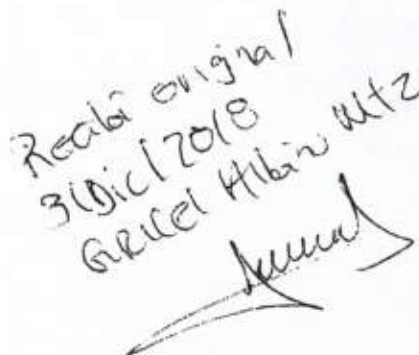 Recibí original
31/Dic/2018
GRICEl Albino Mtz